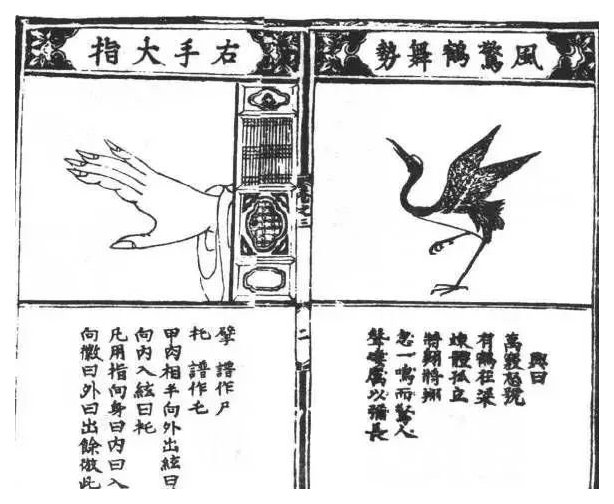 風驚鶴舞勢
興曰
萬竅怒號
有鶴在梁
竦體孤立
將翱將翔
忽一鳴而驚人
聲唳厲以彌長
二
右手大指
擘 譜作尸
托 譜作乇
甲肉相半向外出絃曰
向內入絃曰托
凡用指向身曰內曰入
向徽曰外曰出餘倣此